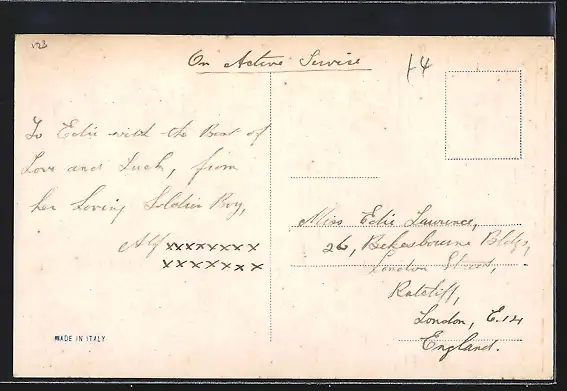 123
On Active Service
14
To Edie with the Best of
Love and Luck, from
her Loving Soldier Boy,
Alf xxxxxxxx
xxxxxxx
Miss Edie Lawrence,
26, Bekesbourne Bldgs,
London Street,
Ratcliff,
London, E.14
England.
MADE IN ITALY